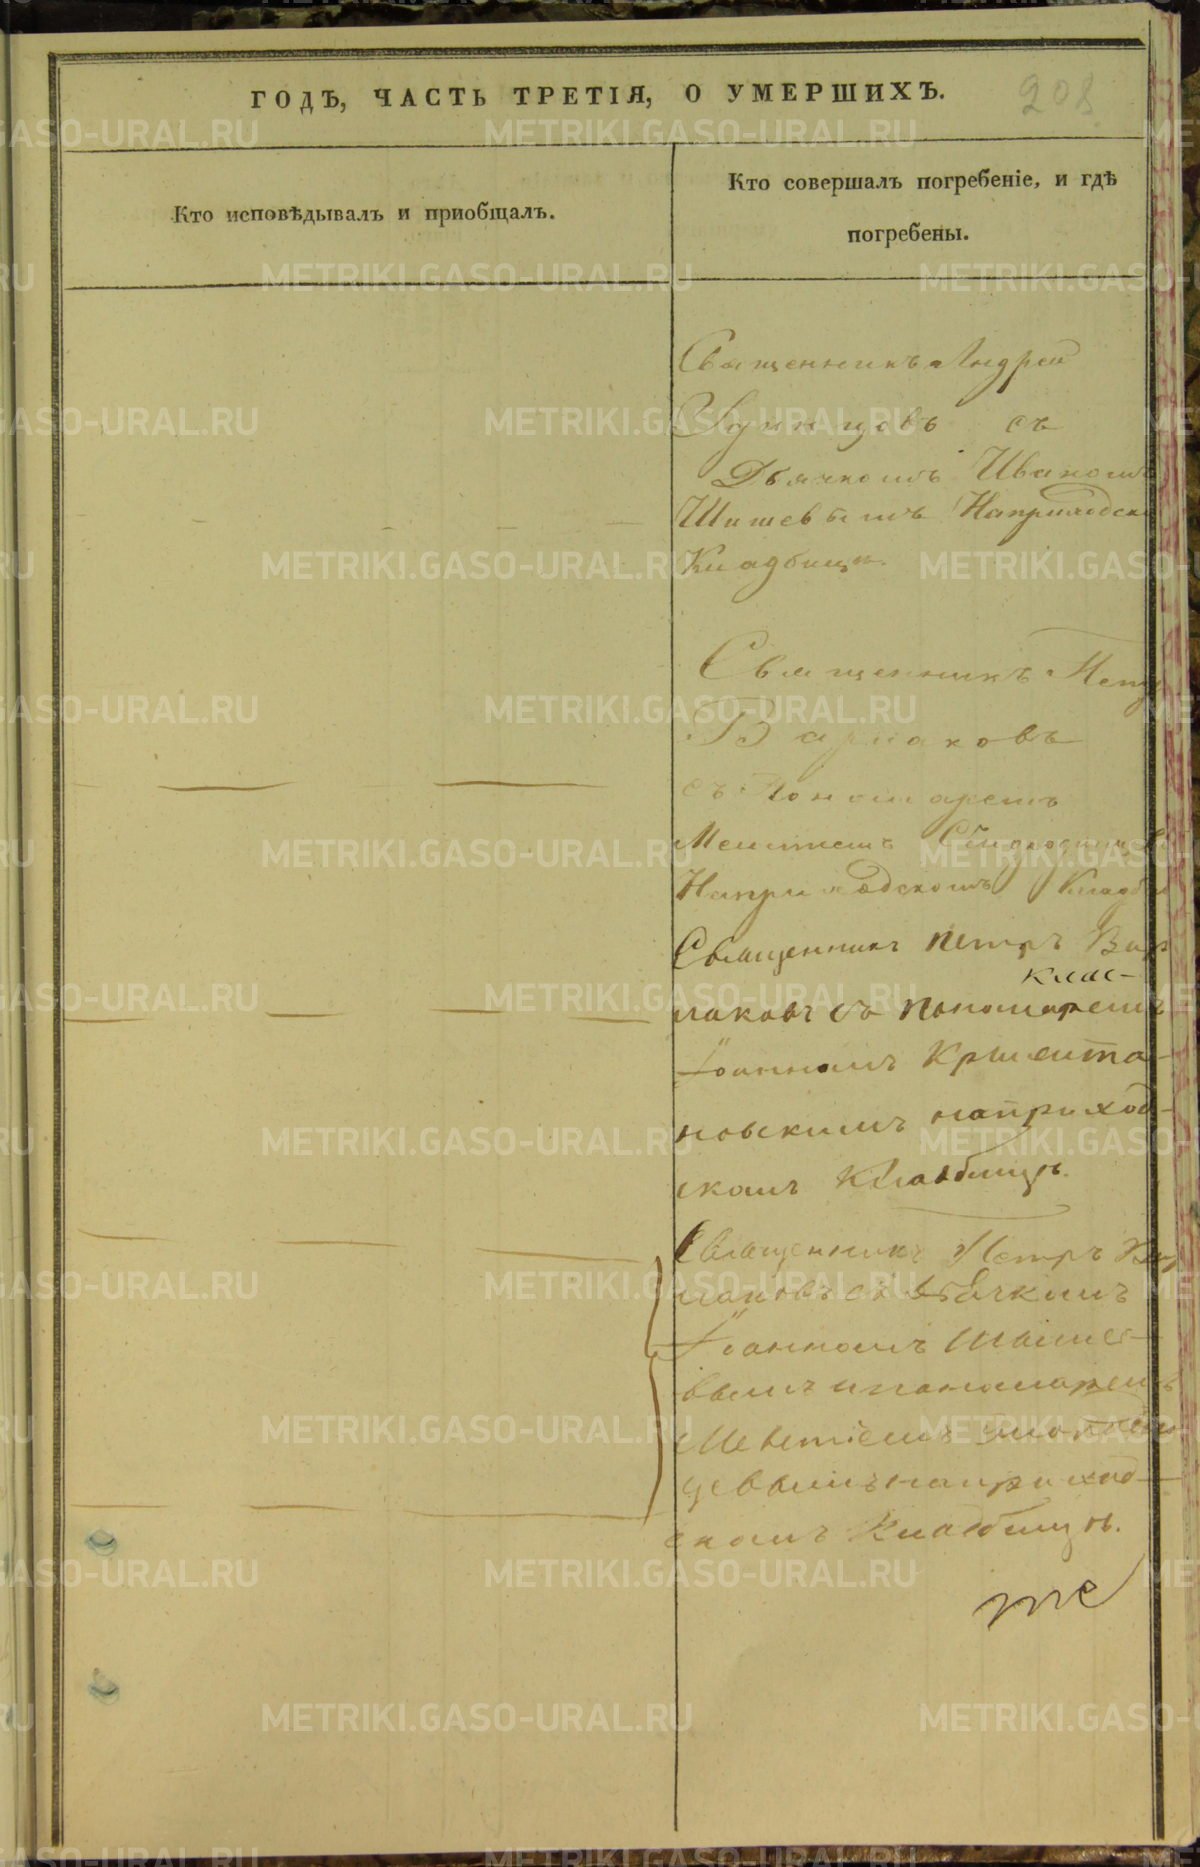 ГОДѢ, ЧАСТЬ ТРЕТІЯ, О УМЕРШИХЪ.
208
Кто исповѣдывалъ и приобщалъ.
Кто совершалъ погребеніе, и гдѣ
погребены.
Священникъ Андрей
Удинцовъ съ
Дьячкомъ Иваномъ
Шишевымъ Наприходск
Кладбищѣ.
Священникъ Петр
Варлаковъ
съ Пономаремъ
Наприходскомъ Кладби
Священникъ Петръ Вар
лаковъ съ пономаремъ
Іоанномъ
новскимъ наприход-
скомъ Кладбищѣ.
Священникъ Петръ Вар
лаковъ съ Дьячкомъ
Іоанномъ Шише-
вымъ и пономаремъ
цевымъ наприход-
скомъ Кладбищѣ.
METRIKI.GASO-URAL.RU